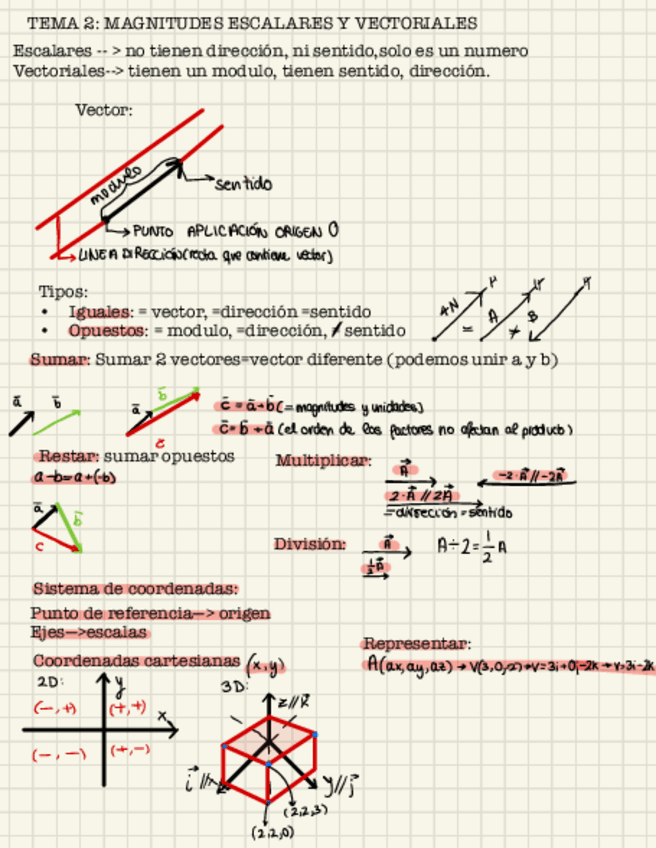 TEMA 2: MAGNITUDES ESCALARES Y VECTORIALES
Escalares -- > no tienen dirección, ni sentido,solo es un numero
Vectoriales--> tienen un modulo, tienen sentido, dirección.
Vector:
modulo
sentido
PUNTO APLICACIÓN ORIGEN O
LINEA DIRECCIÓN(recta que contiene vector)
Tipos:
• Iguales: = vector, =dirección =sentido
• Opuestos: = modulo, =dirección, ≠ sentido
4N
= A ≠ B
Sumar: Sumar 2 vectores=vector diferente (podemos unir a y b)
a b
a b c
c = a+b (=magnitudes y unidades)
c= b + a (el orden de los factores no afectan al producto)
Restar: sumar opuestos
a-b=a+(-b)
a b c
Multiplicar:
A
2·A // 2A
-2·A // -2A
=dirección=sentido
División:
A
½A
A÷2=½A
Sistema de coordenadas:
Punto de referencia—> origen
Ejes—>escalas
Coordenadas cartesianas (x,y)
Representar:
A(ax,ay,az) → V(3,0,-2)→V=3i+0j-2k → V=3i-2k
2D:
y
x
(-,+) (+,+)
(-,-) (+,-)
3D:
z//k
i//x
y//j
(2,2,3)
(2,2,0)